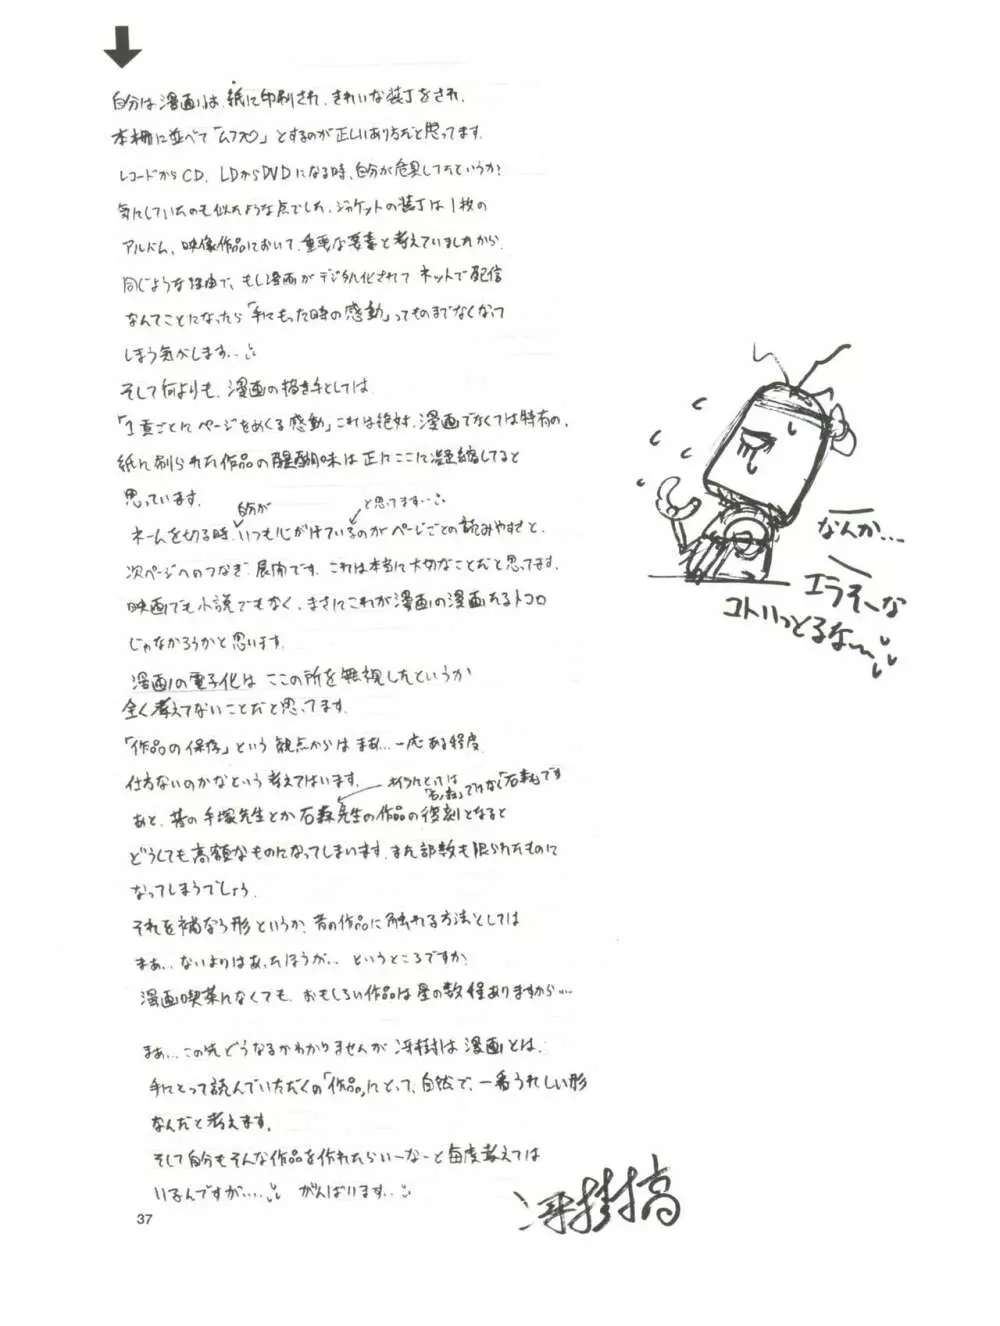 自分は漫画は、紙に印刷され、きれいな装丁をされ、
本棚に並べて「ムフ♡」とするのが正しいあり方だと思ってます。
レコードからCD、LDからDVDになる時、自分が危具してたというか?
気にしていたのも似たような点でした。ジャケットの装丁は1枚の
アルバム、映像作品において、重要な要素と考えていましたから、
同じような理由で、もし漫画がデジタル化されて ネットで配信
なんてことになったら「手にもった時の感動」ってものまでなくなって
しまう気がします…
そして何よりも、漫画の描き手としては
「1頁ごとにページをめくる感動」これは絶対、漫画でなくては特有の、
紙に刷られた作品の醍醐味は正にここに凝縮してると
思っています。
自分が
と思ってます…
ネームを切る時、いつも心がけているのがページごとの読みやすさと、
次ページへのつなぎ、展開です。これは本当に大切なことだと思ってます。
映画でも小説でもなく、まさにこれが漫画の漫画たるトコロ
じゃなかろうかと思います。
漫画の電子化は ここの所を無視したというか
全く考えてないことだと思ってます。
「作品の保存」という観点からは まあ…一応ある程度
仕方ないのかなという考えではいます。
オイラにとっては
「石ノ森」ではなく「石森」です
あと、昔の手塚先生とか石森先生の作品の復刻となると
どうしても高額なものになってしまいます。また部数も限られたものに
なってしまうでしょう。
それを補なう形というか、昔の作品に触れる方法としては
まあ…ないよりはあったほうが… というところですか?
漫画喫茶になくても、おもしろい作品は星の数程ありますから…
まあ…この先どうなるかわかりませんが 冴樹は 漫画とは、
手にとって読んでいただくの「作品」にとって、自然で、一番うれしい形
なんだと考えます。
そして自分もそんな作品を作れたらいーなーと毎度考えては
いるんですが… がんばります…
なんか…
エラそーな
コトいっとるな~
冴樹高
37